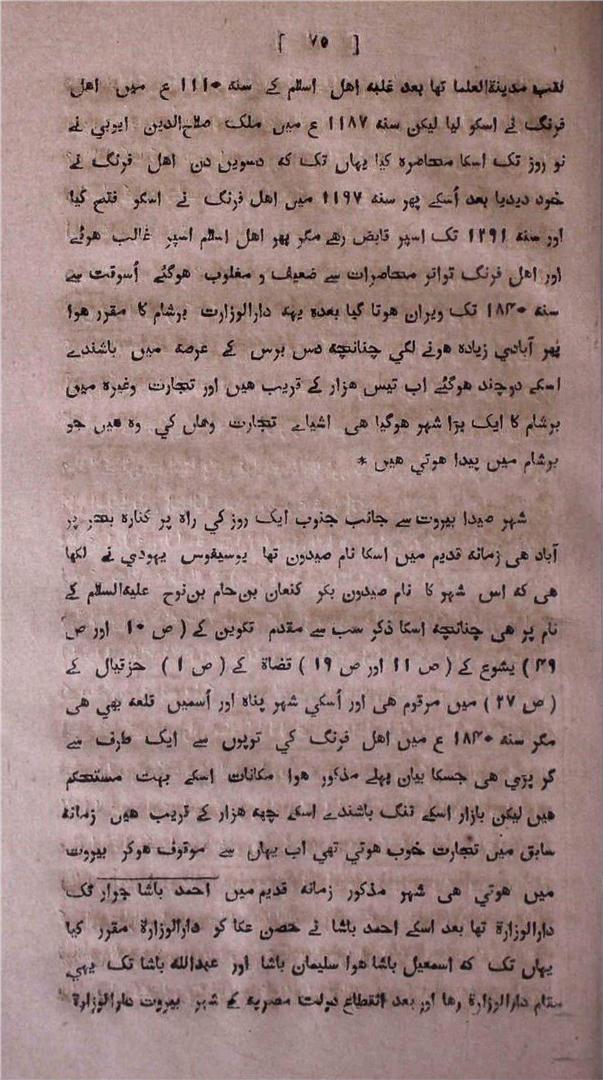 [ ٧٥ ]
لقب مدینةالعلما تھا بعد غلبه اهل اسلام کے سنه ١١١٠ ع میں اهل
فرنگ نے اسکو لیا لیکن سنه ١١٨٧ ع میں ملک صلاح‌الدین ایوبي نے
نو روز تک اسکا محاصره کیا یہاں تک که دسویں دن اهل فرنگ نے
خود دیدیا بعد اُسکے پھر سنه ١١٩٧ میں اهل فرنگ نے اسکو فتح کیا
اور سنه ١٢٩١ تک اسپر قابض رهے مگر پھر اهل اسلام اسپر غالب هوئے
اور اهل فرنگ تواتر محاصرات سے ضعیف و مغلوب هوگئے اُسوقت سے
سنه ١٨٤٠ تک ویران هوتا گیا بعده یهه دارالوزارت برشام کا مقرر هوا
پھر آبادي زیاده هونے لگي چنانچه دس برس کے عرصه میں باشندے
اسکے دوچند هوگئے اب تیس هزار کے قریب هیں اور تجارت وغیره میں
برشام کا ایک بڑا شہر هوگیا هی اشیاے تجارت وهاں کي وه هیں جو
برشام میں پیدا هوتي هیں *
شہر صیدا بیروت سے جانب جنوب ایک روز کي راه پر کناره بحر پر
آباد هی زمانه قدیم میں اسکا نام صیدون تھا یوسیفوس یہودي نے لکھا
هی که اس شہر کا نام صیدون بکر کنعان بن‌حام بن‌نوح علیه‌السلام کے
نام پر هی چنانچه اسکا ذکر سب سے مقدم تکوین کے ( ص ١٠ اور ص
٤٩ ) یشوع کے ( ص ١١ اور ص ١٩ ) قضاة کے ( ص ١ ) حزقیال کے
( ص ٢٧ ) میں مرقوم هی اور اُسکي شہر پناه اور اُسمیں قلعه بھي هی
مگر سنه ١٨٤٠ ع میں اهل فرنگ کي توپوں سے ایک طرف سے
گر پڑي هی جسکا بیان پہلے مذکور هوا مکانات اسکے بہت مستحکم
هیں لیکن بازار اسکے تنگ باشندے اسکے چھه هزار کے قریب هیں زمانه
سابق میں تجارت خوب هوتي تھي اب یہاں سے موقوف هوکر بیروت
میں هوتي هی شہر مذکور زمانه قدیم میں احمد باشا جزار تک
دارالوزارة تھا بعد اسکے احمد باشا نے حصن عکا کو دارالوزارة مقرر کیا
یہاں تک که اسمعیل باشا هوا سلیمان باشا اور عبدالله باشا تک یہي
مقام دارالوزارة رها اور بعد انقطاع دولت مصریه کے شہر بیروت دارالوزارة